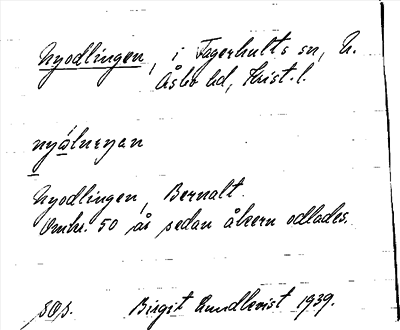 Nyodlingen, i Fagerhults sn, N.
Åsbo hd, Krist. l.
Nyodlingen, Bernalt.
Omkr. 50 år sedan åkern odlades.
Birgit Lundkvist 1939.